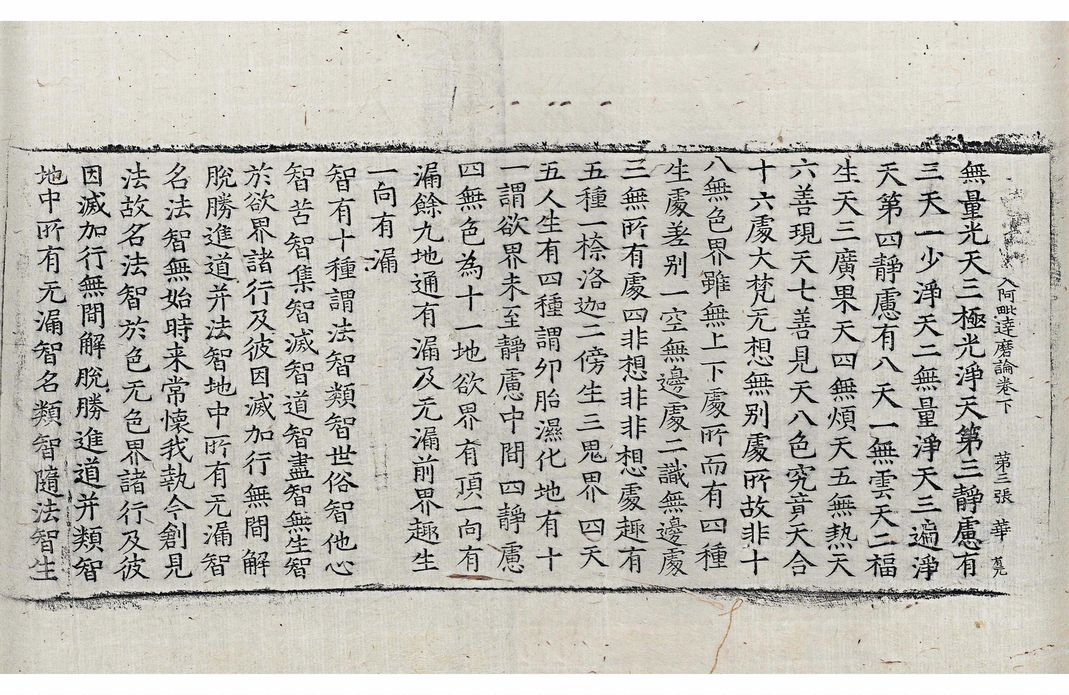 入阿毗達磨論卷下　第三張　華
無量光天三極光淨天第三靜慮有
三天一少淨天二無量淨天三遍淨
天第四靜慮有八天一無雲天二福
生天三廣果天四無煩天五無熱天
六善現天七善見天八色究竟天合
十六處大梵无想無別處所故非十
八無色界雖無上下處所而有四種
生處差別一空無邊處二識無邊處
三無所有處四非想非非想處趣有
五種一㮈洛迦二傍生三鬼界四天
五人生有四種謂卵胎濕化地有十
一謂欲界未至靜慮中間四靜慮
四無色為十一地欲界有頂一向有
漏餘九地通有漏及无漏前界趣生
一向有漏
智有十種謂法智類智世俗智他心
智苦智集智滅智道智盡智無生智
於欲界諸行及彼因滅加行無間解
脫勝進道并法智地中所有无漏智
名法智無始時来常懷我執今創見
法故名法智於色无色界諸行及彼
因滅加行無間解脫勝進道并類智
地中所有无漏智名類智隨法智生